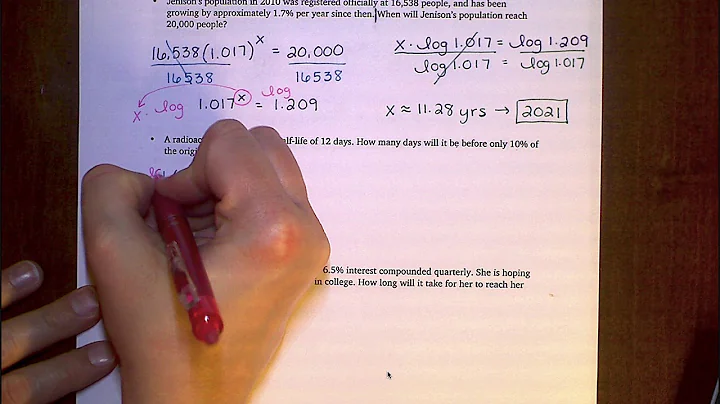 • Jenison's population in 2010 was registered officially at 16,538 people, and has been
growing by approximately 1.7% per year since then. When will Jenison's population reach
20,000 people?
16,538(1.017)^x = 20,000
16538 16538
x· log 1.017^x = log 1.209
x · log 1.017 = log 1.209
log 1.017 = log 1.017
x ≈ 11.28 yrs → 2021
• A lf-life of 12 days. How many days will it be before only 10% of
the
6.5% interest compounded quarterly. She is hoping
in college. How long will it take for her to reach her